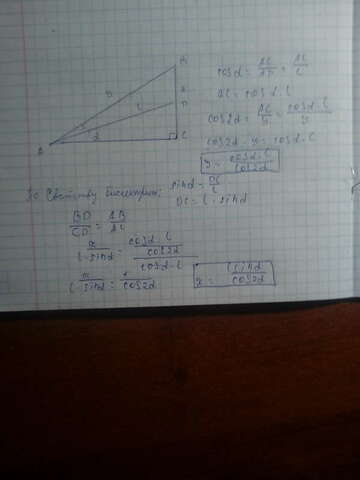 B
y
x
l
D
α
α
A
C
cosα = AC/AD = AC/l
AC = cosα·l
cos2α = AC/y = cosα·l/y
cos2α·y = cosα·l
y = cosα·l/cos2α
По свойству биссектрисы:
sinα = DC/l
DC = l·sinα
BD/CD = AB/AC
x/l·sinα = cosα·l/cos2α/cosα·l
x/l·sinα = 1/cos2α
x = l sinα/cos2α